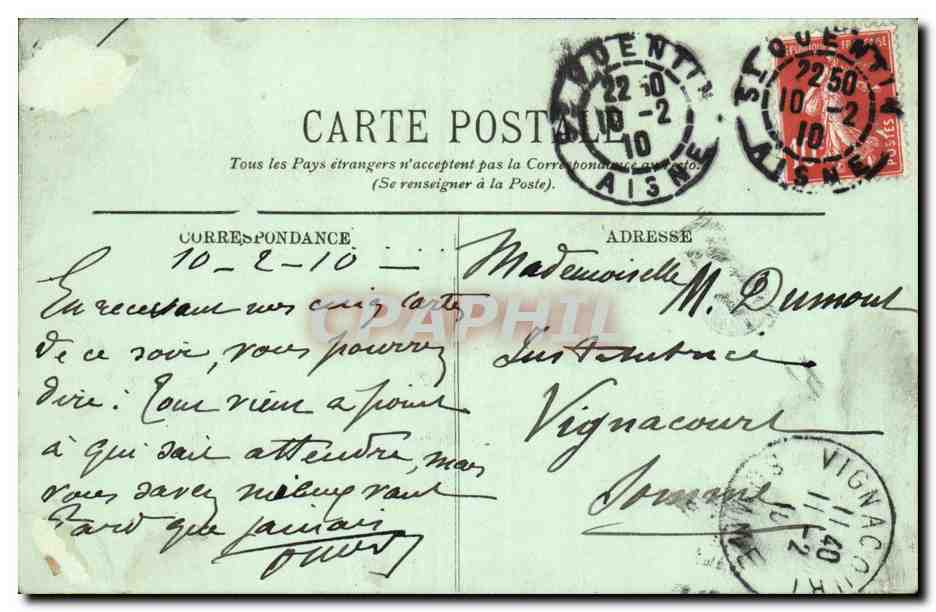 CARTE POSTALE
Tous les Pays étrangers n'acceptent pas la Correspondance au recto.
(Se renseigner à la Poste).
ST QUENTIN
22 50
10 -2
10
AISNE
ST QUENTIN
22 50
10 -2
10
AISNE
REPUBLIQUE FRANÇAISE
POSTES
CORRESPONDANCE
10-2-10
En recevant nos cinq cartes
de ce soir, vous pourrez
dire : Tout vient a point
à qui sait attendre, mais
vous savez mieux vaut
tard que jamais
ADRESSE
Mademoiselle
M. Dumont
Institutrice
Vignacourt
Somme
VIGNACOURT
11 40
11 -2
10
SOMME
CPAPHIL